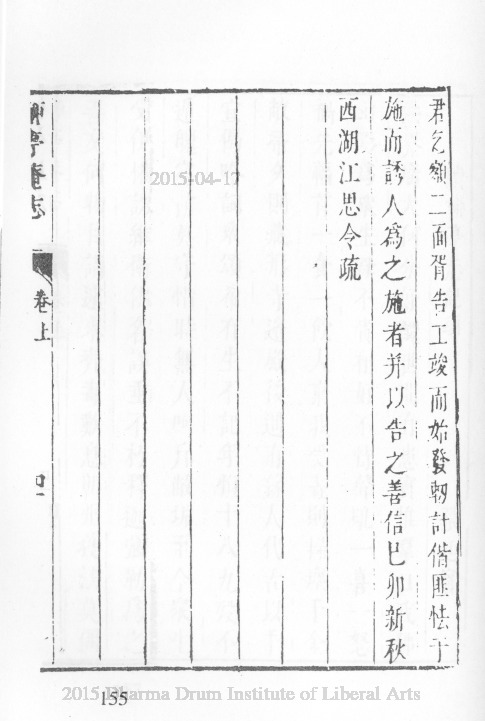 君乞額二面胥告工竣而始發軔計偕匪怯于
施而誘人為之施者并以告之善信己卯新秋
西湖江思令疏
亭菴志
卷上
2015-04-17
155
2015 Dharma Drum Institute of Liberal Arts